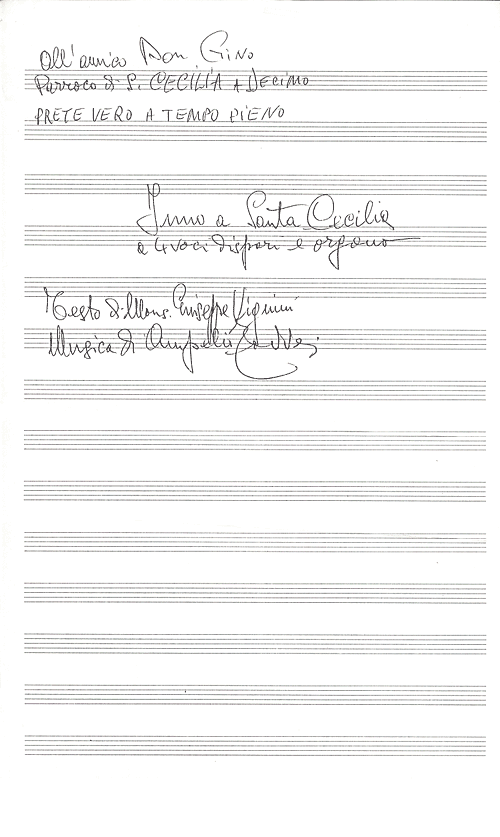 All'amico Don Gino
Parroco di S. CECILIA A DECIMO
PRETE VERO A TEMPO PIENO
Inno a Santa Cecilia
a 4 voci dispari e organo
Testo di Mons. Giuseppe
Musica di Ampelio